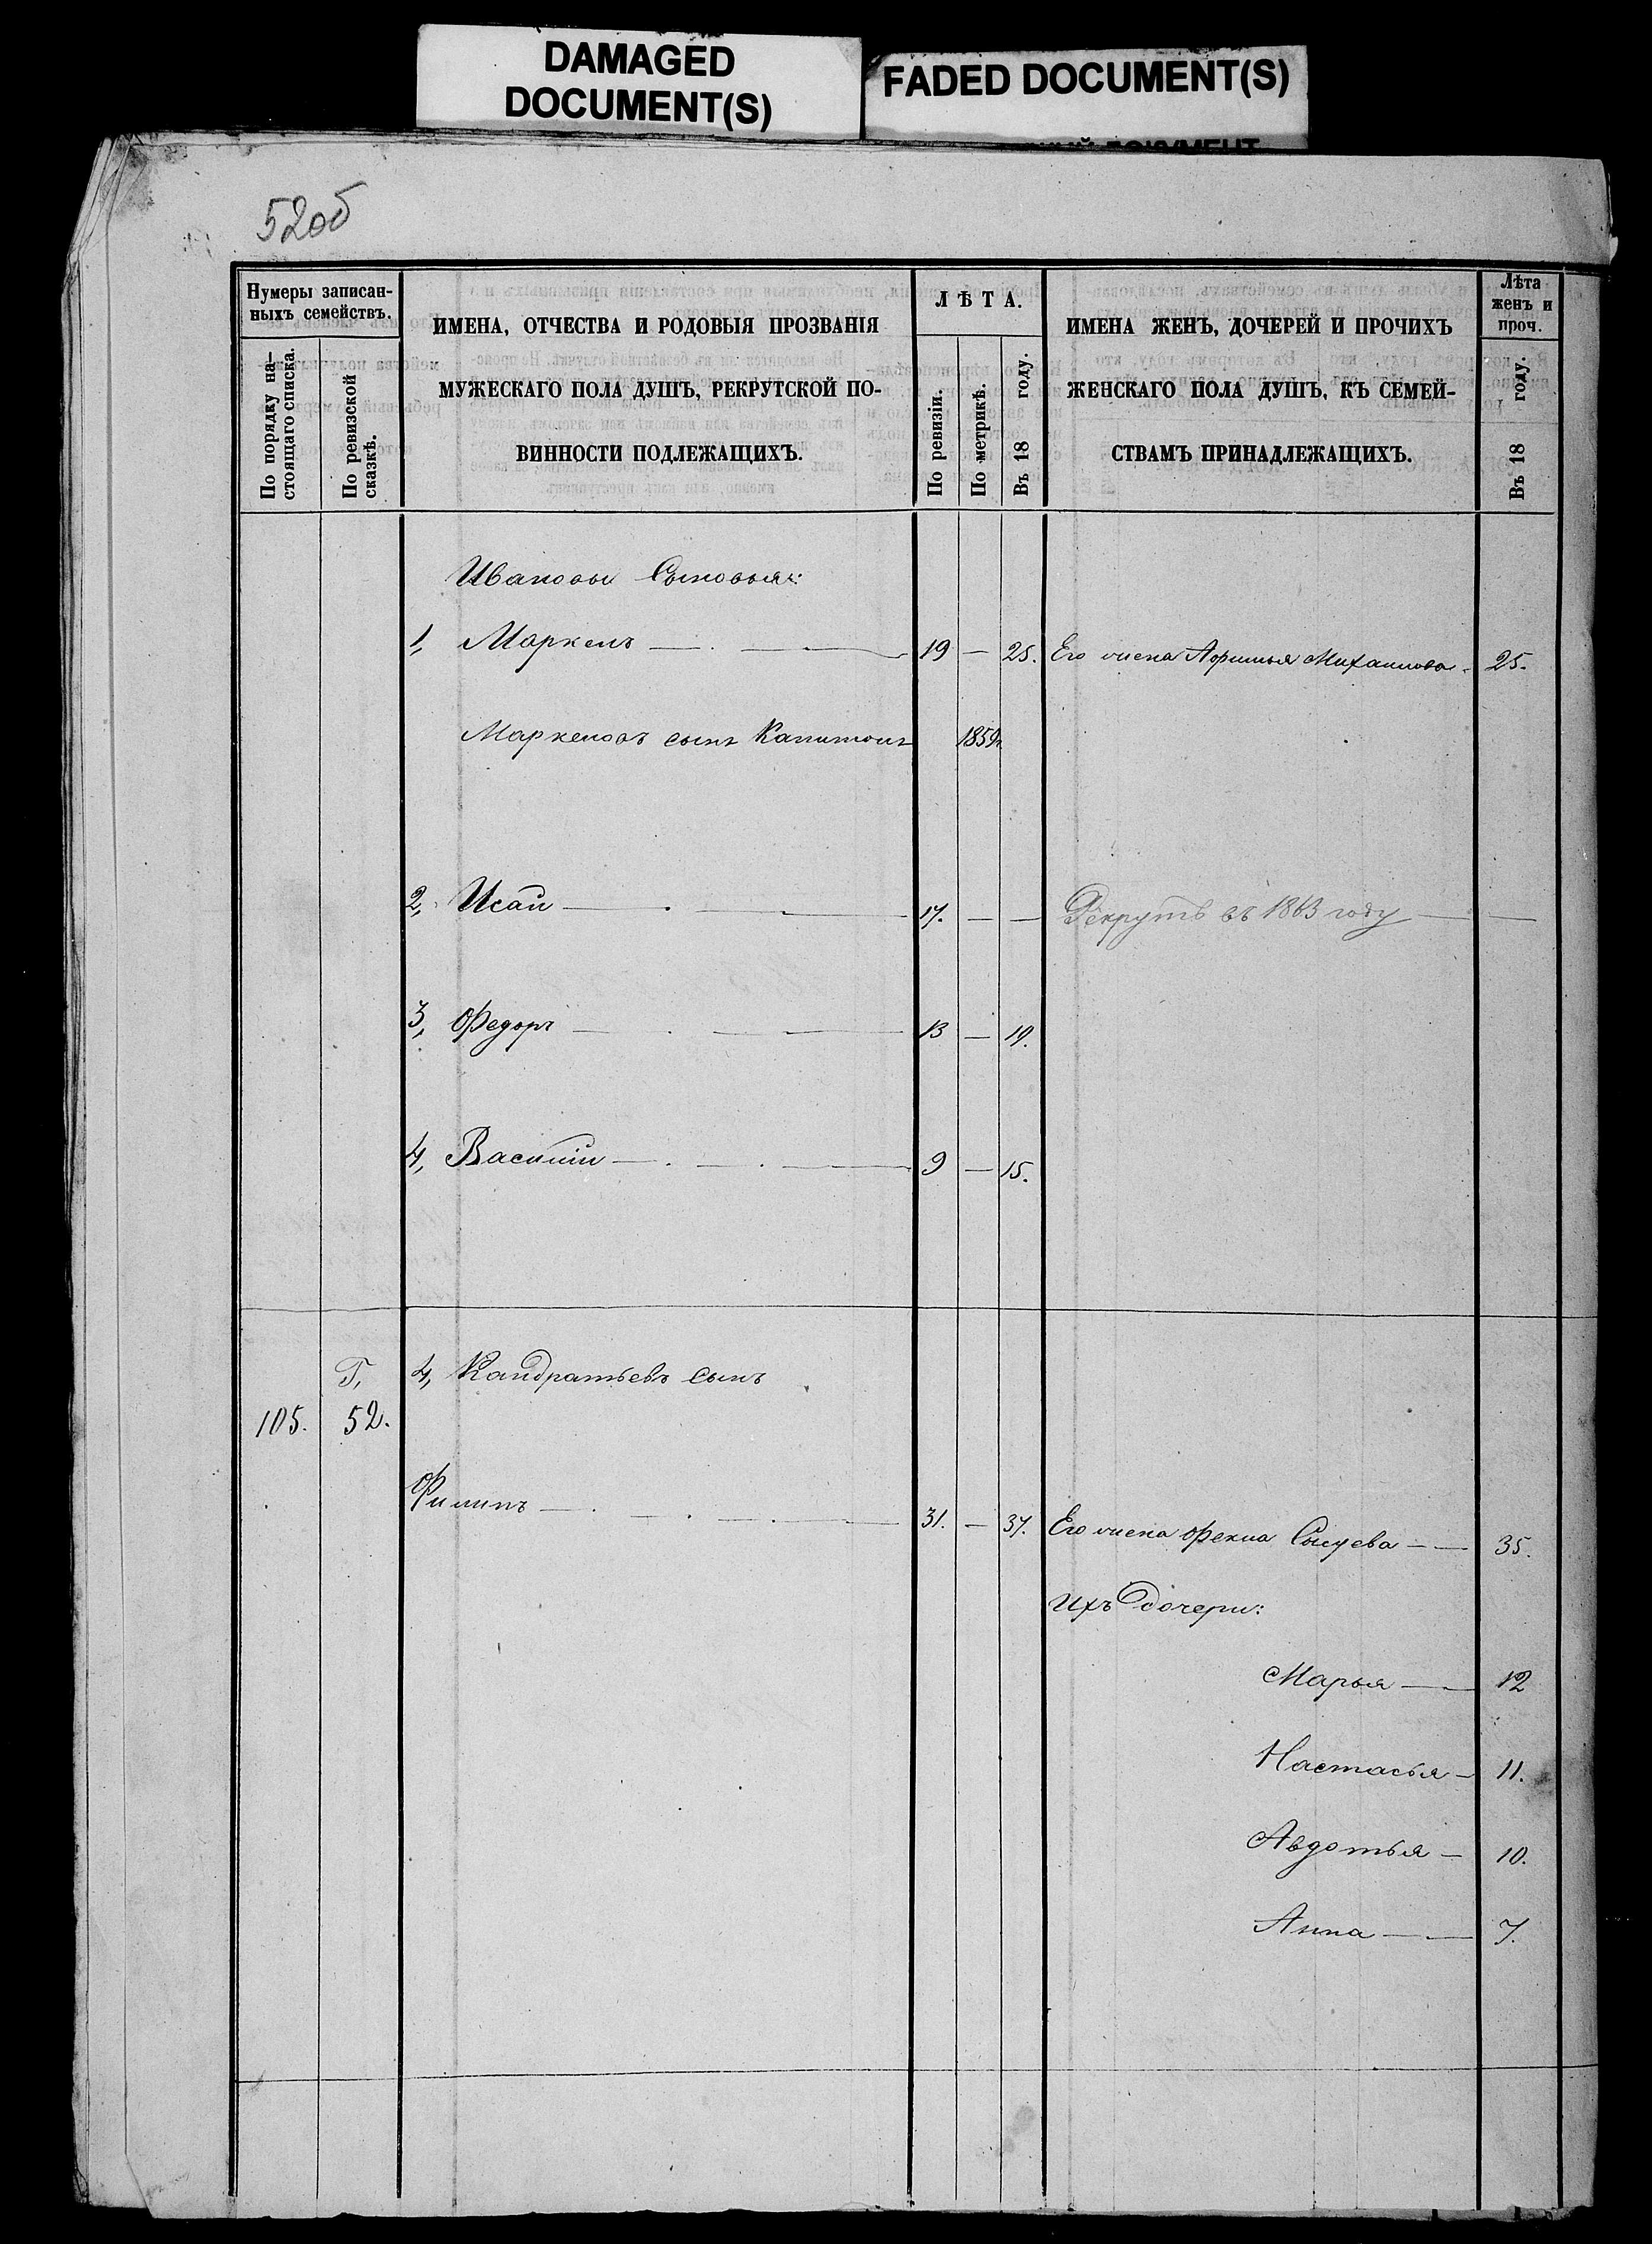 DAMAGED
DOCUMENT(S)
FADED DOCUMENT(S)
52об
Нумеры записан-
ныхъ семействъ.
По порядку на-
стоящаго списка.
По ревизской
сказкѣ.
ИМЕНА, ОТЧЕСТВА И РОДОВЫЯ ПРОЗВАНІЯ
МУЖЕСКАГО ПОЛА ДУШЪ, РЕКРУТСКОЙ ПО-
ВИННОСТИ ПОДЛЕЖАЩИХЪ.
ЛѢТА.
По ревизіи.
По метрикѣ.
Въ 18 году.
ИМЕНА ЖЕНЪ, ДОЧЕРЕЙ И ПРОЧИХЪ
ЖЕНСКАГО ПОЛА ДУШЪ, КЪ СЕМЕЙ-
СТВАМЪ ПРИНАДЛЕЖАЩИХЪ.
Лѣта
женъ и
проч.
Въ 18 году.
Ивановы Сыновья:
1, Маркелъ — 19 — 25. Его жена Афимья Михаилова 25.
Маркеловъ сынъ Капитонъ 1859г
2, Исаи — 17. — — Рекрутъ въ 1863 году —
3, Федоръ — 13 — 19.
4, Василіи — 9 — 15.
Г, 4, Кандратьевъ сынъ
105. 52.
Филипъ — 31. — 37. Его жена Фекла Сысуева — 35.
Ихъ дочери:
Марья — 12
Настасья — 11.
Авдотья — 10.
Анна — 7.